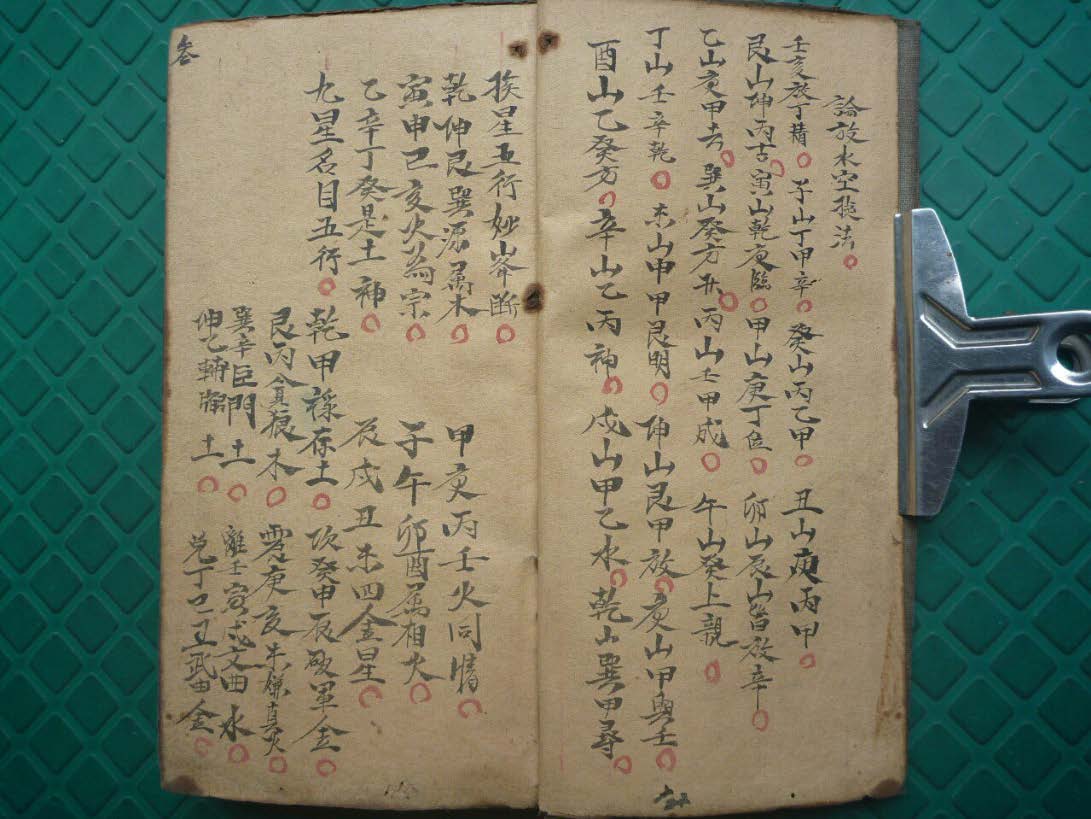 論放水空䂓法
壬亥放丁藉 子山丁甲辛 癸山丙乙甲 丑山庚丙甲
艮山坤丙古 寅山乾庚臨 甲山庚丁位 卯山辰山皆放辛
乙山庚甲去 巽山癸方安 丙山壬甲成 午山癸上親
丁山壬辛乾 未山申甲艮明 坤山艮甲放 庚山甲與壬
酉山乙癸方 辛山乙丙神 戌山甲乙水 乾山巽甲尋
挨星五行妙峯斷
乾坤艮巽源属木 甲庚丙壬火同情
寅申巳亥火為宗 子午卯酉属相火
乙辛丁癸是土神 辰戌丑未四金星
九星名目五行 乾甲祿存土 坎癸申辰破軍金
艮丙貪狼木 震庚亥未廉貞火
巽辛巨門土 離壬寅戌文曲水
坤乙輔弼土 兌丁巳丑武曲金
叁